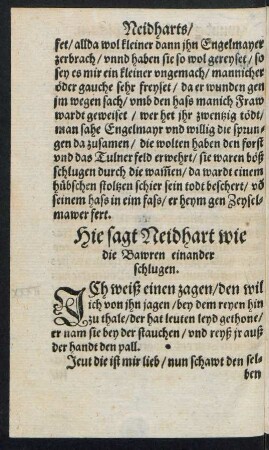 Neidharts/
set/allda wol kleiner dann jhn Engelmayer
zerbrach/vnnd haben sie so wol gereyset/so
sey es mir ein kleiner vngemach/mannicher
öder gauche sehr freyset/da er wunden gen
jm wegen sach/vmb den haß manich Fraw
wardt geweiset/wer het jhr zwenzig tödt/
man sahe Engelmayr vnd willig die sprun-
gen da zusamen/die wolten haben den forst
vnd das Tulner feld erwehrt/sie waren böß
schlugen durch die wam̃en/da wardt einem
hübschen stoltzen schier sein tod beschert/võ
seinem haß in eim fass/er heym gen Zeysel-
mawer fert.
Hie sagt Neidhart wie
die Bawren einander
schlugen.
ICh weiß einen zagen/den wil
ich von jhn jagen/bey dem reyen hin
zu thale/der hat leuten leyd gethone/
er nam sie bey der stauchen/vnd reyß jr auß
der handt den pall.
Jeut die ist mir lieb/nun schawt den sel-
ben